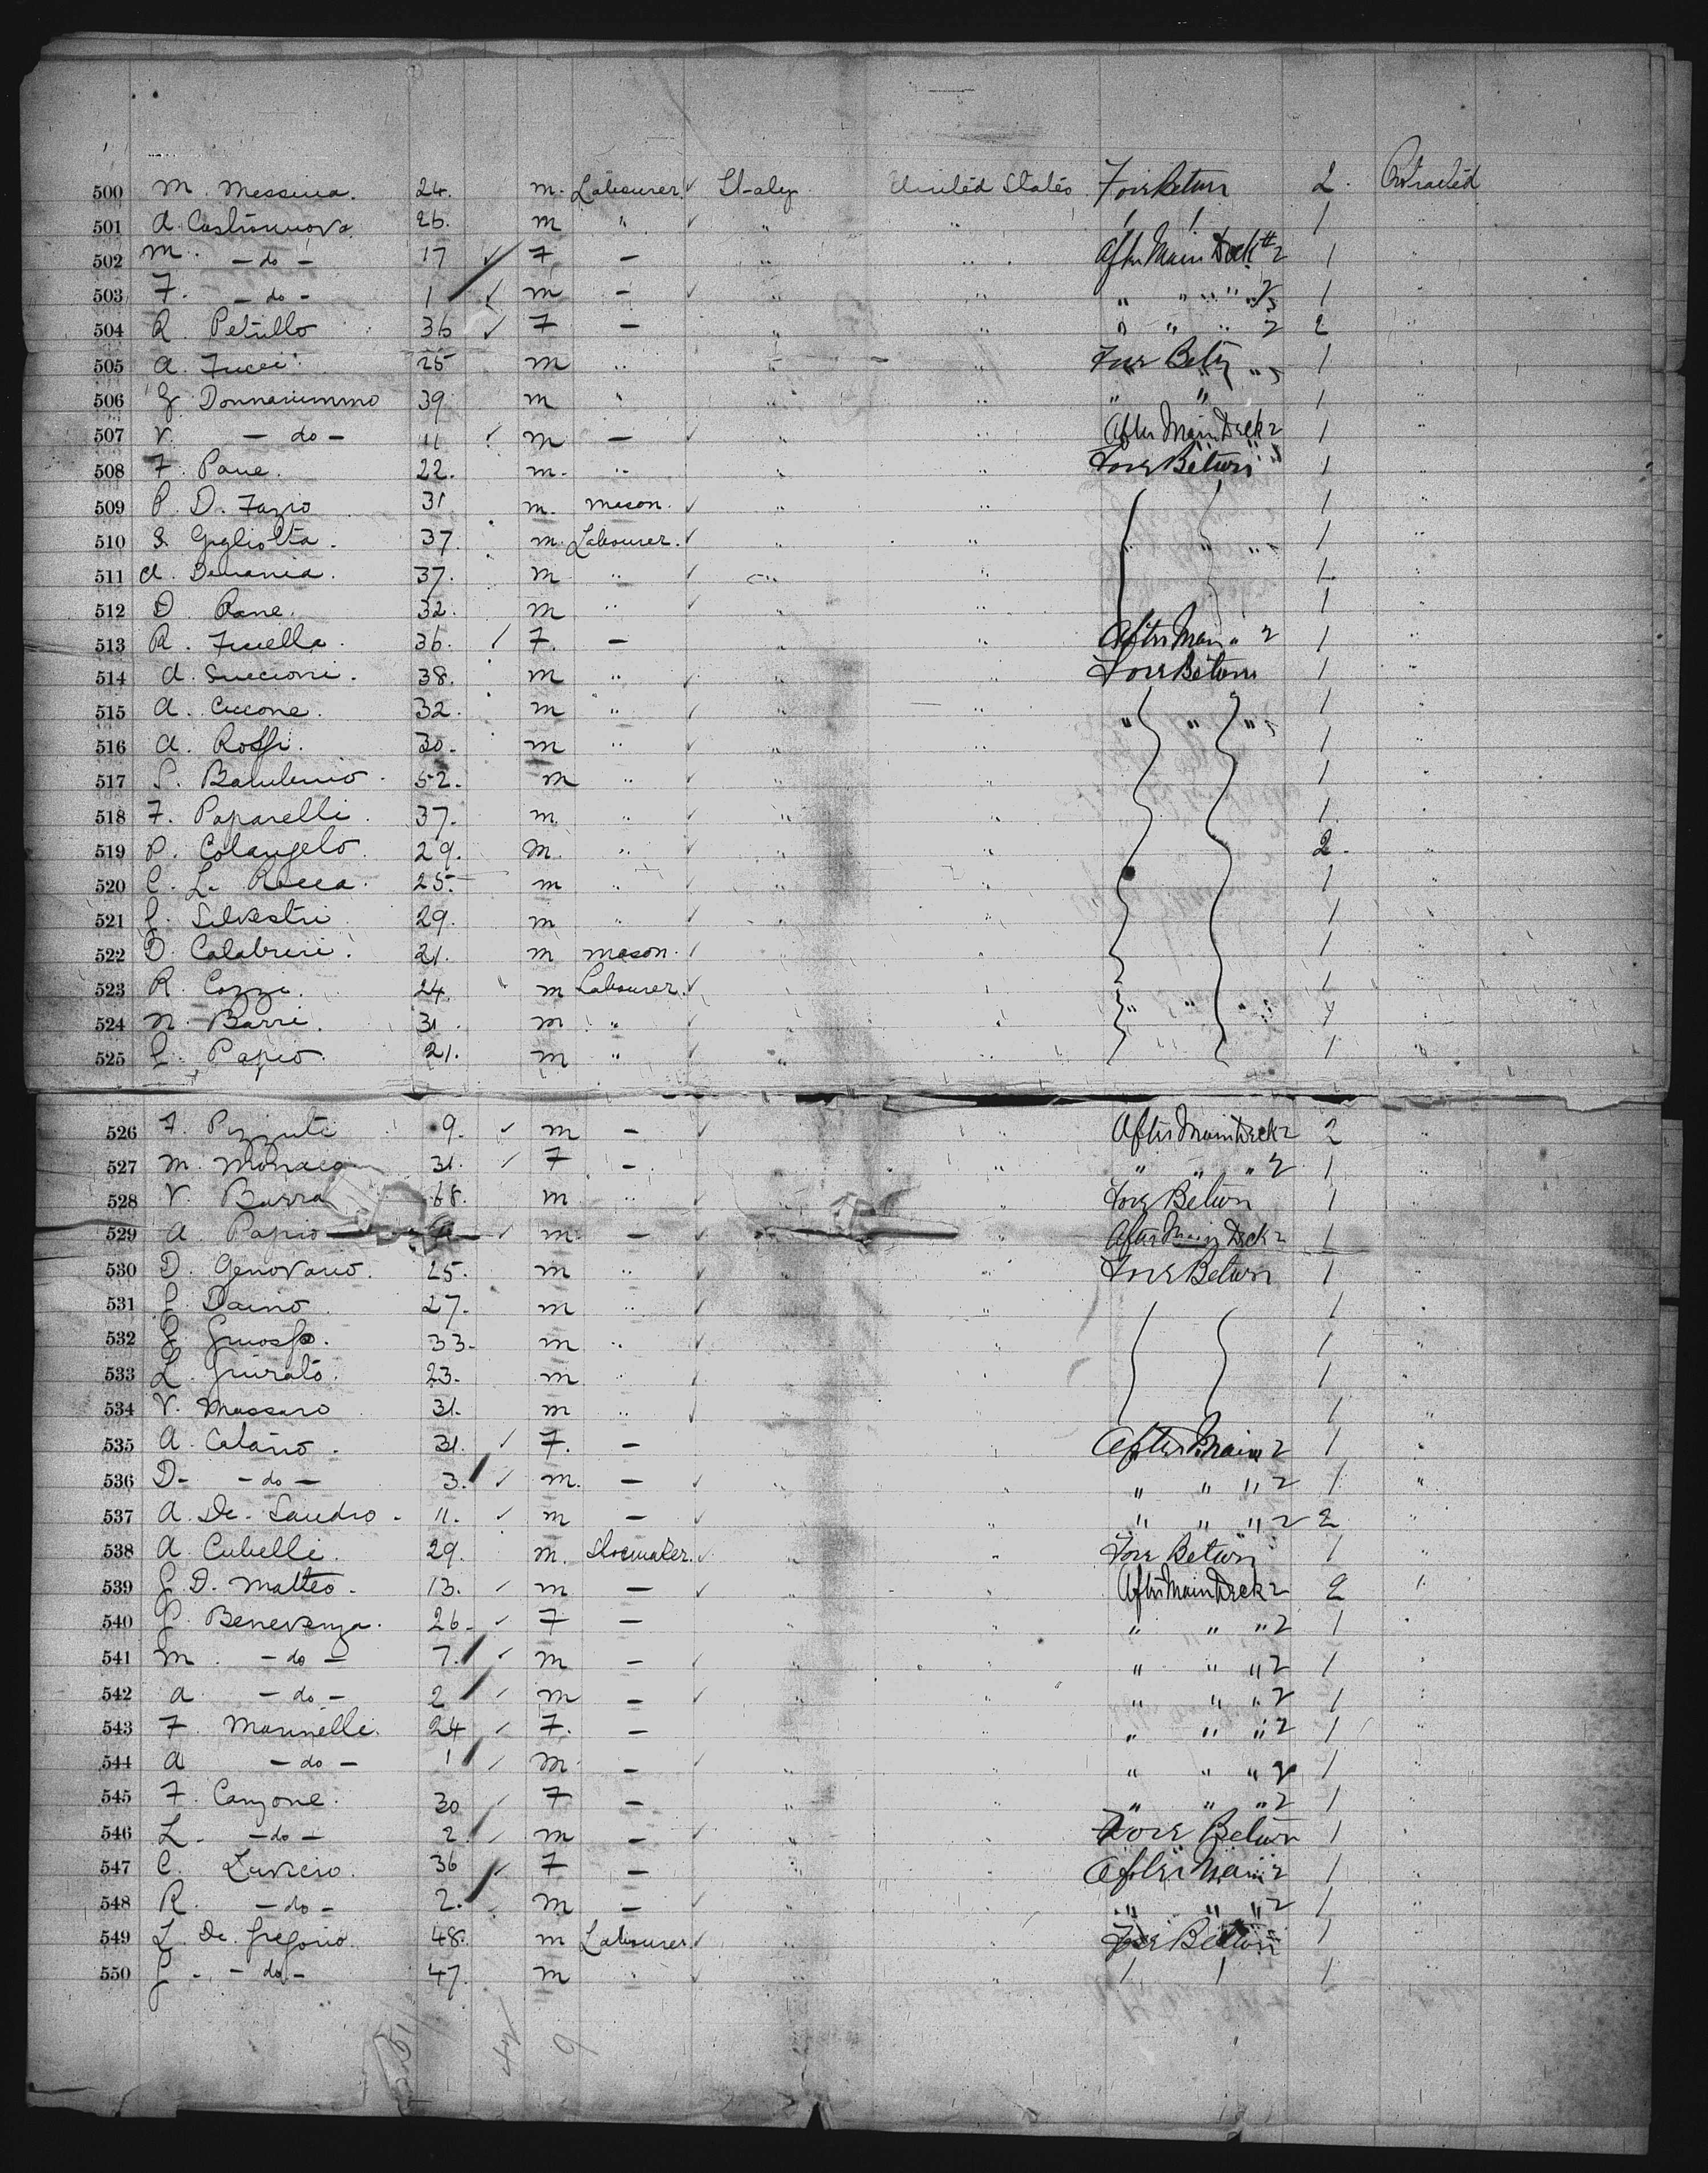 500 M. Messina. 24. m. Labourer. ✓ Italy United States Fore Betwn 2. Protracted
501 A. Castronuova 26. m " ✓ " " / / 1
502 M. - do - 17 ✓ F - " " After Main Deck #2 1 "
503 F. - do - 1 ✓ m - ✓ " " " " " 2 1 "
504 R. Petrillo 36 ✓ F - " " " " " 2 2 "
505 A. Fucci 25 m " " " Fore Betw " 1 "
506 G. Donnarummo 39 m " " " " " 1 "
507 V. - do - 11 ✓ m - ✓ " " After Main Deck 2 1 "
508 F. Pane. 22. m. " " " Fore Betwn 1 "
509 P. D. Fazio 31 m. Mason. ✓ " " 1 "
510 S. Gigliotta. 37. m. Labourer. ✓ " " " " " 1 "
511 A. 37. m " ✓ " " 1. "
512 D. Pane. 32. m " ✓ " " 1 "
513 R. Fucella. 36. ✓ F. - " " After Main " 2 1 "
514 A. Succioni. 38. m " ✓ " " Fore Betwn 1 "
515 A. Ciccone. 32. m " ✓ " " " " " 1 "
516 A. Rossi. 30. m " ✓ " " 1 "
517 S. 52. m " ✓ " " 1 "
518 F. Paparelli. 37. m " ✓ " " 1. "
519 P. Colangelo. 29. m. " ✓ " " 2. "
520 C. La Rocca. 25. m " ✓ " " 1 "
521 G. Silvestri 29. m " ✓ " " 1 "
522 D. Calabresi. 21. m Mason. ✓ " " 1 "
523 R. Cozzi. 24. m Labourer. ✓ " " 1 "
524 N. Barri. 31. m " ✓ " " " " " 1 "
525 G. Papio. 21. m " ✓ " " 1 "
526 F. Pizzuti 9. ✓ m - ✓ " After Main Deck 2 2 "
527 M. Monaco 31. ✓ F - " " " " 2 1 "
528 V. Barra 68. m " ✓ " Fore Betwn 1 "
529 A. Papio ✓ m. - ✓ " After Main Deck 2 1 "
530 D. Genovario. 25. m " ✓ " " Fore Betwn 1 "
531 G. Daino. 27. m " ✓ " " 1 "
532 G. 33. m " ✓ " " 1 "
533 L. Giurato. 23. m " ✓ " " 1 "
534 V. Massaro 31. m " ✓ " " 1 "
535 A. Catano. 31. ✓ F. - " " After Main 2 1 "
536 D- - do - 3. ✓ m. - ✓ " " " " " 2 1 "
537 A. De. Sandro. 11. ✓ m - ✓ " " " " " 2 2 "
538 A. Cubelli. 29. m. Shoemaker. ✓ " " Fore Betwn 1 "
539 G. D. Matteo. 13. ✓ m - ✓ " " After Main Deck 2 2 "
540 G. Benevenza. 26. ✓ F - " " " " " 2 1 "
541 M. - do - 7. ✓ m - ✓ " " " " " 2 1 "
542 A - do - 2 ✓ m - ✓ " " " " " 2 1 "
543 F. Marinelli. 24 ✓ F. - " " " " " 2 1 "
544 A - do - 1 ✓ m. - ✓ " " " " " 2 1 "
545 F. Canzone. 30 ✓ F - " " " " " 2 1 "
546 L. - do - 2 ✓ m - ✓ " " Fore Betwn 1 "
547 C. 36 ✓ F - " " After Main 2 1 "
548 R. - do - 2. m - ✓ " " " " " 2 1 "
549 L. De. Gregorio 48. m Labourer ✓ " " Fore Betwn 1 "
550 G - - do - 47. m " ✓ " " / / 1 "
42 9